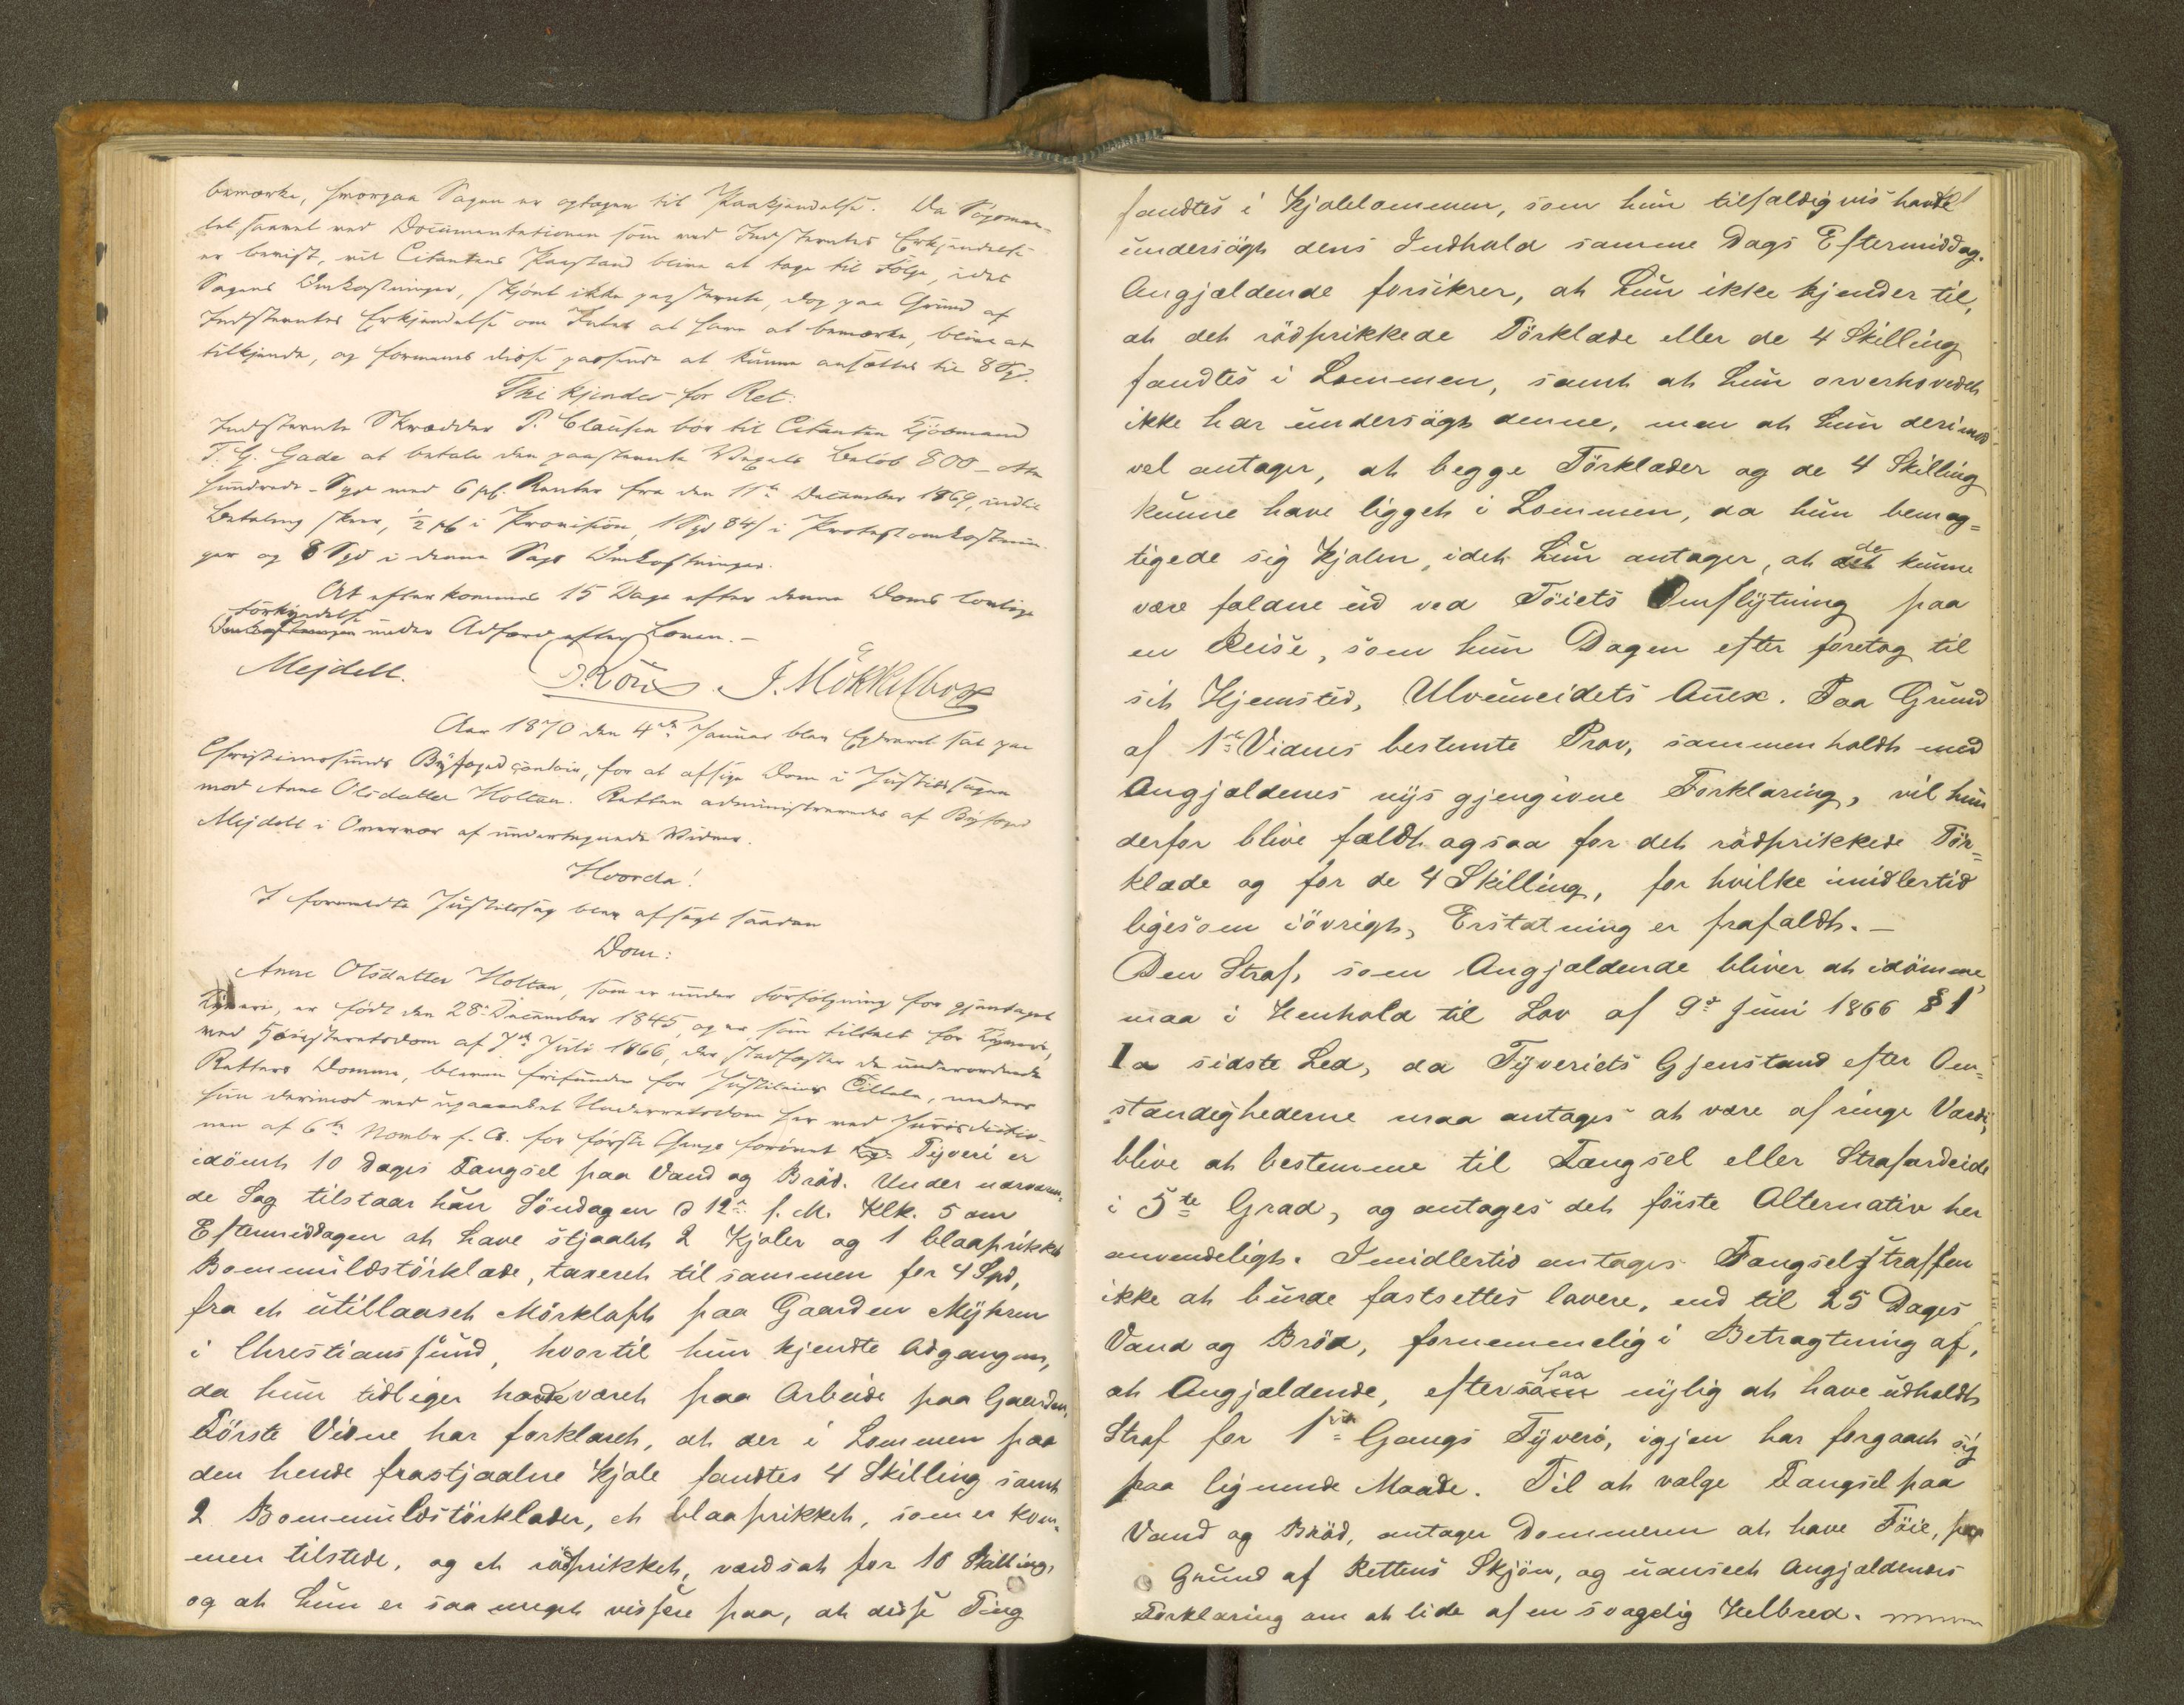 bemærke, hvorpaa Sagen er optagen til Paakjendelse. Da Søgsmaa-
let saavel ved Documentationen som ved Indstevntes Erkjendelse
er bevist, vil Citantens Paastand blive at tage til Følge, idet
Sagens Omkostninger, skjønt ikke paastevnte, dog paa Grund af
Indstevntes Erkjendelse om Intet at have at bemærke, blive at
tilkjende, og formenes disse passende at kunne ansættes til 8 Spd.
Thi kjendes for Ret:
Indstevnte Skrædder P. Clausen bør til Citanten Kjøbmand
T. G. Gade at betale den paastevnte Vexels Beløb 800 - otte
hundrede - Spd med 6 pCt. Renter fra den 11te December 1869, indtil
Betaling skeer, ½ pCt i Provision, 1 Spd 84 s i Protestomkostnin-
ger og 8 Spd i denne Sags Omkostninger.
At efterkommes 15 Dage efter denne Doms lovlige
Forkyndelse
Omkostninger under Adfærd efter Loven. -
Mejdell. J. Møkkelbost
Aar 1870 den 4de Januar blev Extraret sat paa
Christianssunds Byfogedcontoir, for at afsige Dom i Justitssagen
mod Anne Olsdatter Holtan. Retten administreredes af Byfoged
Mejdell i Overvær af undertegnede Vidner.
Hvorda!
I foremeldte Justitssag blev afsagt saadan
Dom:
Anne Olsdatter Holtan, som er under Forfølgning for gjentaget
Tyveri, er født den 28de December 1845, og er, som tiltalt for Tyveri,
ved Høiesteretsdom af 7de Juli 1866, der stadfæster de underordnede
Retters Domme, bleven frifunden for Justitiens Tiltale, medens
hun derimod ved upaaanket Underretsdom her ved Jurisdictio-
nen af 6te Novbr f. A. for første Gang forøvet Tyveri er
idømt 10 Dages Fængsel paa Vand og Brød. Under nærværen-
de Sag tilstaar hun Søndagen d 12te f. M. Klk. 5 om
Eftermiddagen at have stjaalet 2 Kjoler og 1 blaaprikket
Bommuldstørklæde, taxeret tilsammen for 4 Spd,
fra et utillaaset Mørkloft paa Gaarden Myhren
i Christianssund, hvortil hun kjendte Adgangen,
da hun tidligere havde været paa Arbeide paa Gaarden.
Første Vidne har forklaret, at der i Lommen paa
den hende frastjaalne Kjole fandtes 4 Skilling samt
2 Bommuldstørklæder, et blaaprikket, som er kom-
men tilstede, og et rødprikket, værdsat for 10 Skilling,
og at hun er saa meget vissere paa, at disse Ting
fandtes i Kjolelommen, som hun tilfældigvis havde
undersøgt dens Indhold samme Dags Eftermiddag.
Angjældende forsikrer, at hun ikke kjender til,
at det rødprikkede Tørklæde eller de 4 Skilling
fandtes i Lommen, samt at hun overhovedet
ikke har undersøgt denne, men at hun derimod
vel antager, at begge Tørklæder og de 4 Skilling
kunne have ligget i Lommen, da hun bemæg-
tigede sig Kjolen, idet hun antager, at det de kunne
være faldne ud ved Tøiets Omflytning paa
en Reise, som hun Dagen efter foretog til
sit Hjemsted, Ulvemeidets Anex. Paa Grund
af 1ste Vidnes bestemte Prov, sammenholdt med
Angjældenes nys gjengivne Forklaring, vil hun
derfor blive fældt ogsaa for det rødprikkede Tør-
klæde og for de 4 Skilling, for hvilke imidlertid
ligesom iøvrigt, Erstatning er frafaldt. -
Den Straf, som Angjældende bliver at idømme,
maa i Henhold til Lov af 9de Juni 1866 § 1
1a sidste Led, da Tyveriets Gjenstand efter Om-
stændighederne maa antages at være af ringe Værdi,
blive at bestemme til Fængsel eller Strafarbeide
i 5te Grad, og antages det første Alternativ her
anvendeligt. Imidlertid antages Fængselsstraffen
ikke at burde fastsettes lavere, end til 25 Dages
Vand og Brød, fornemmelig i Betragtning af,
at Angjældende, eftersom paa nylig at have udholdt
Straf for 1ste Gangs Tyveri, igjen har forgaaet sig
paa lignende Maade. Til at vælge Fængsel paa
Vand og Brød, antager Dommeren at have Føie, paa
Grund af Rettens Skjøn, og uanseet Angjældendes
Forklaring om at lide af en svagelig Helbred.